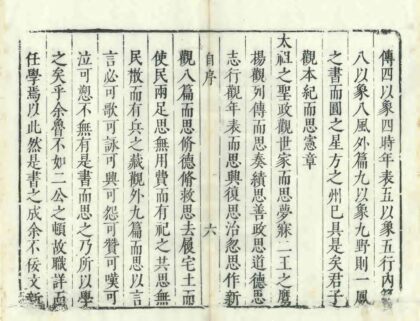 傳四以象四時年表五以象五行內篇
八以象八風外篇九以象九野則一鳳
之書而圓之星方之州已具是矣君子
觀本紀而思憲章
太祖之聖政觀世家而思夢寐二王之鷹
揚觀列傳而思奏績思善政思道德思
志行觀年表而思興復思治忽思作新
自序
六
觀八篇而思脩德脩救思去履宅土而
使民兩足思無用費而有祀之共思無
民散而有兵之藏觀外九篇而思以言
言必可歌可詠可興可怨可贊可嘆可
泣可恕不無有是書而思之乃所以學
之矣乎余魯不如二公之頓故職詳而
任學焉以此然是書之成余不佞文新